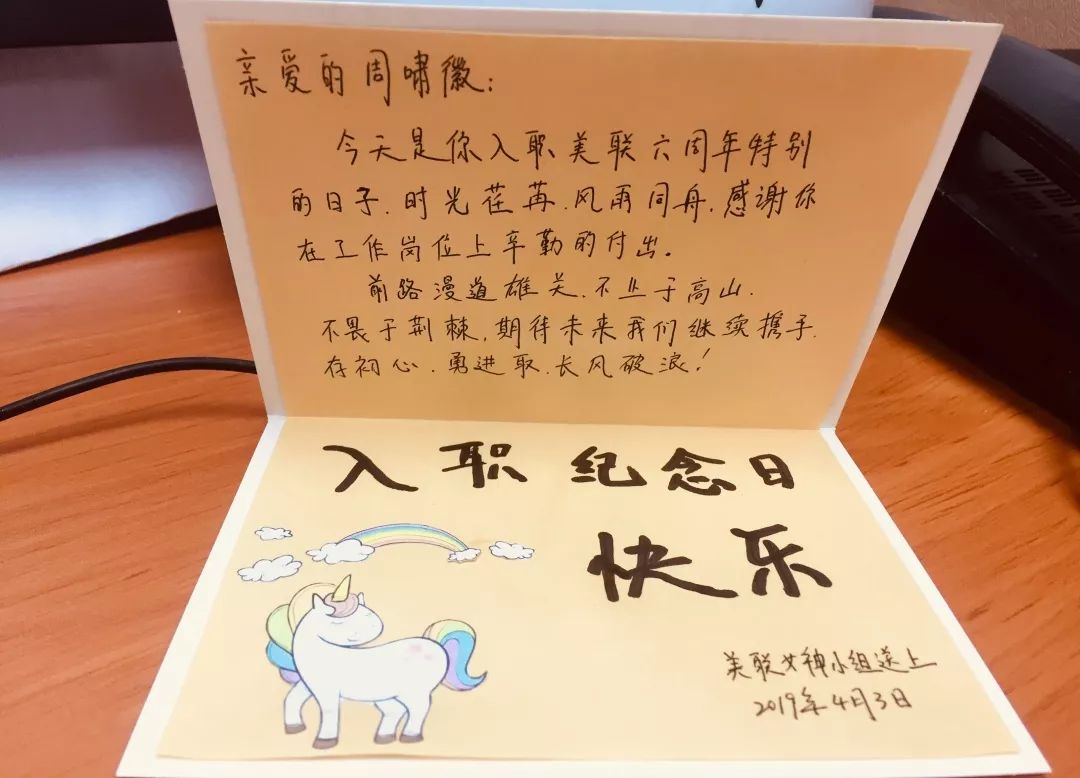 亲爱的周啸徽：
今天是你入职美联六周年特别
的日子.时光荏苒.风雨同舟.感谢你
在工作岗位上辛勤的付出。
前路漫道雄关.不止于高山.
不畏于荆棘.期待未来我们继续携手.
存初心.勇进取.长风破浪！
入职纪念日
快乐
美联女神小组送上
2019年4月3日